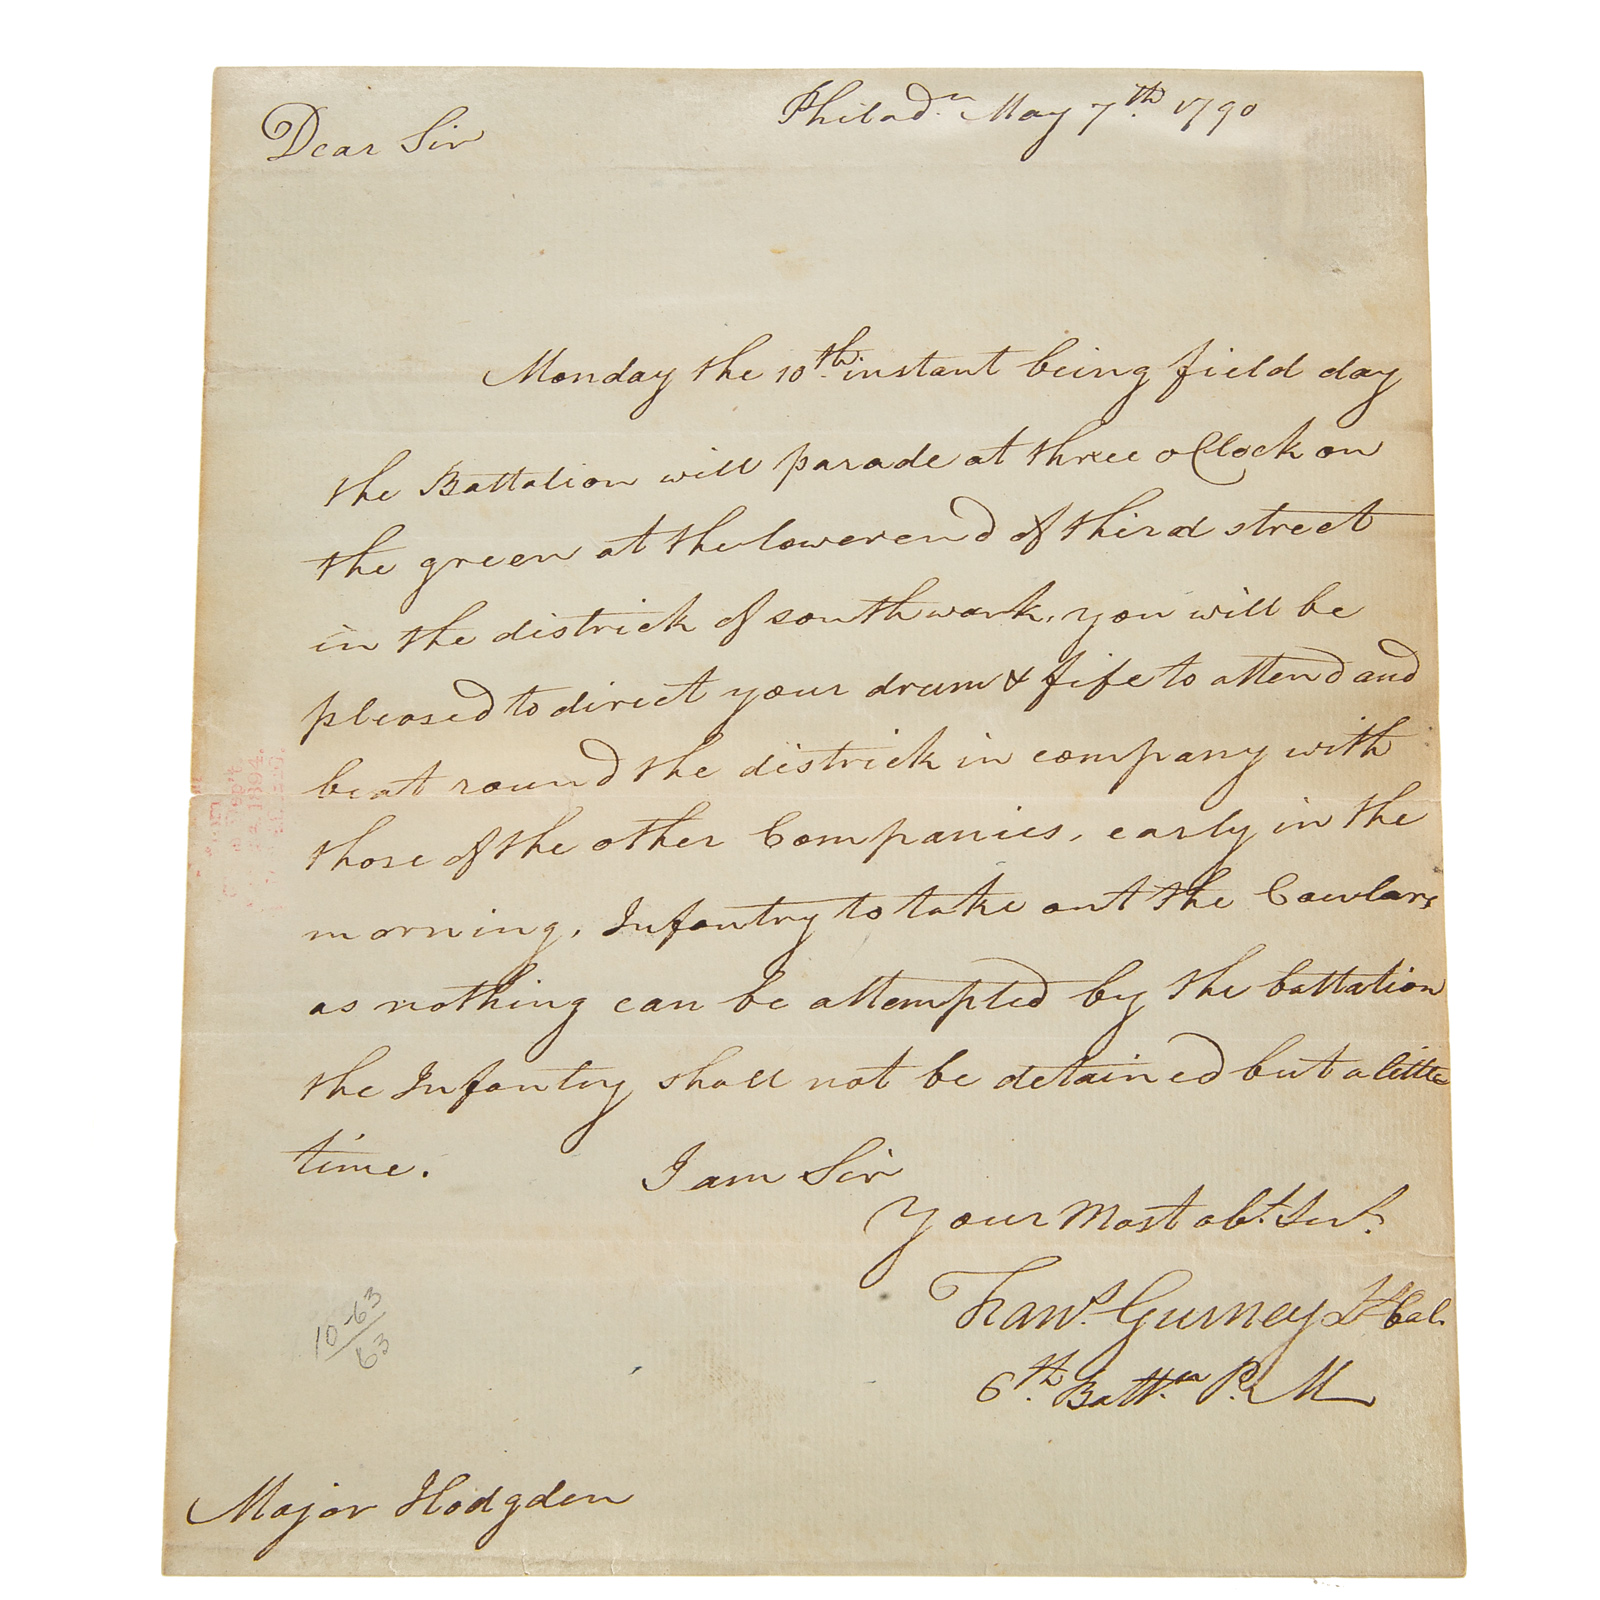 Philadᵃ May 7th. 1790
Dear Sir
Monday the 10th. instant being field day
the Battalion will parade at three oClock on
the green at the lower end of third street
in the districk of southwark, you will be
pleased to direct your drum & fife to attend and
beat round the districk in company with
those of the other Companies, early in the
morning, Infantry to take out the
as nothing can be attempted by the battalion
the Infantry shall not be detained but a little
time. I am Sir
Your Most obt. Servt.
Frans. Gurney Lt Col.
6th. Battn. P. M
10-63
63
Major Hodgden
1894.